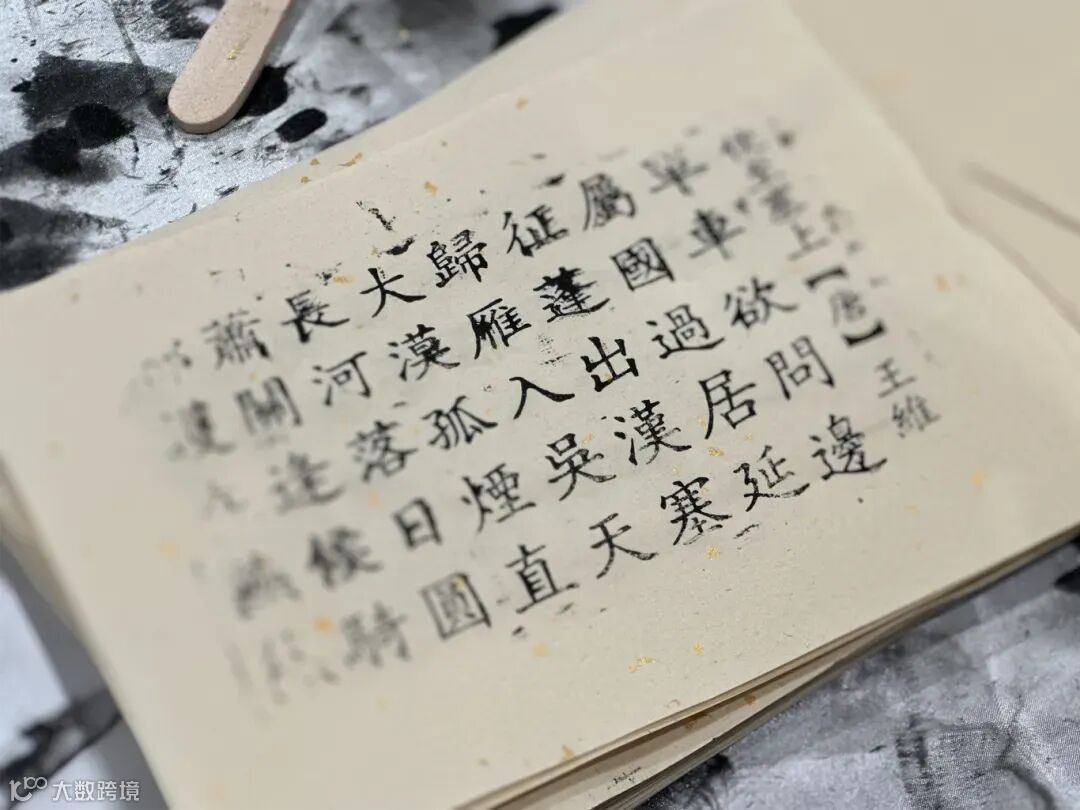 使至塞上
【唐】王維
單車欲問邊
屬國過居延
征蓬出漢塞
歸雁入吳天
大漠孤煙直
長河落日圓
蕭關逢候騎
大数跨境